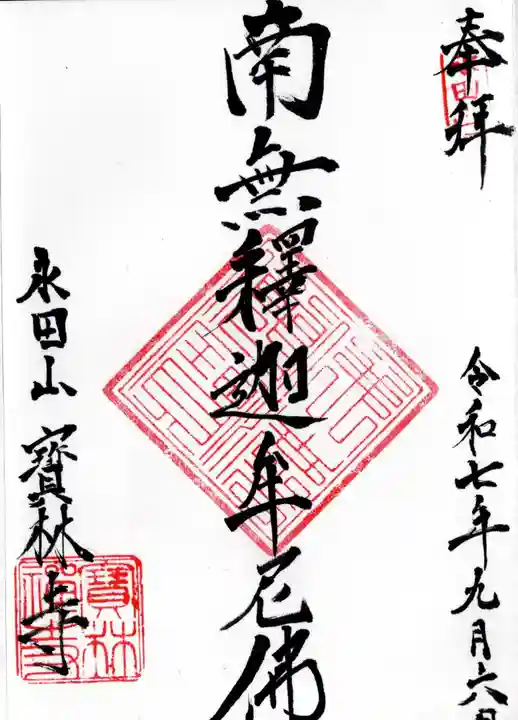 奉拝
令和七年九月六日
南無釋迦牟尼佛
永田山寶林寺
寶林
禪寺